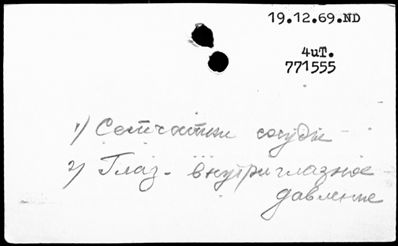 19.12.69.ND
4иТ.
771555
1) Сетчатки сосуды
2) Глаз - внутриглазное
давление